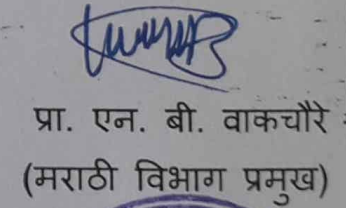 प्रा. एन. बी. वाकचौरे
(मराठी विभाग प्रमुख)